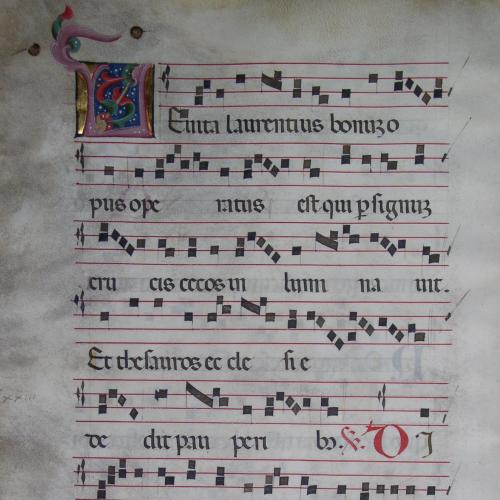 Levita laurentius bonuz o
pus ope ratus est qui p signuz
cru cis cecos in lumi na uit.
Et thesauros ec cle si e
de dit pau peri bȝ. ℣. D I